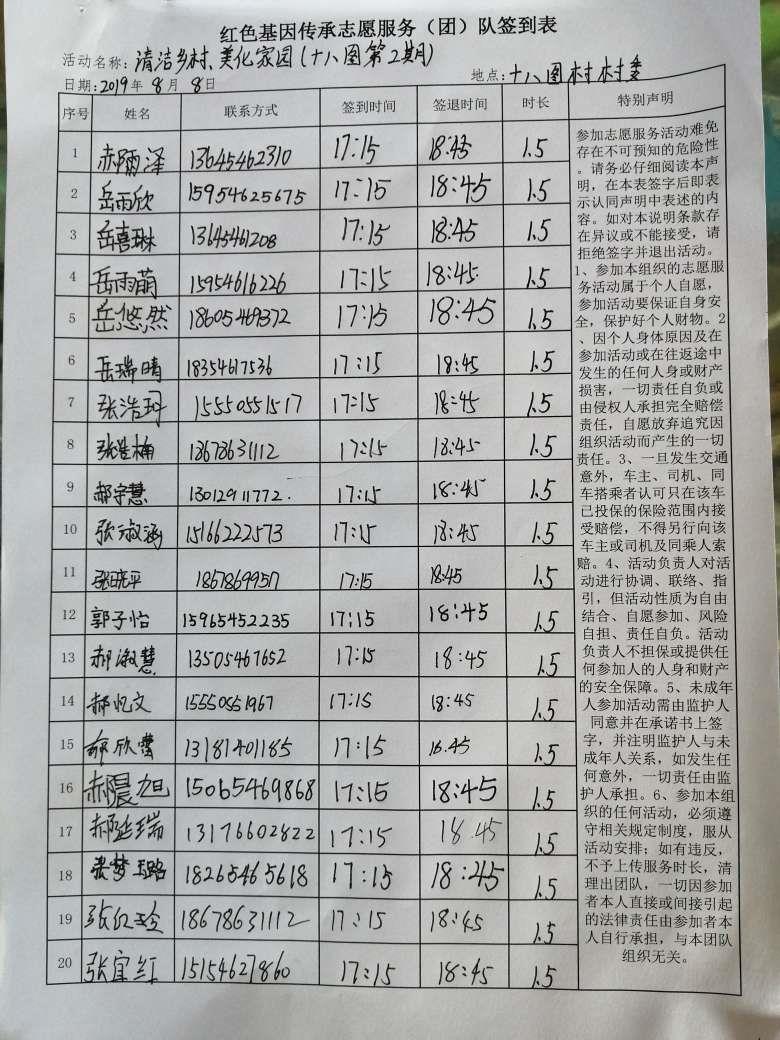 红色基因传承志愿服务（团）队签到表
活动名称：清洁乡村,美化家园(十八图第2期)
日期：2019年8月8日 地点：十八图村村委
序号 姓名 联系方式 签到时间 签退时间 时长 特别声明
1 赤雨泽 13645462310 17:15 18:45 1.5
2 岳雨欣 15954625675 17:15 18:45 1.5
3 岳喜琳 13645461208 17:15 18:45 1.5
4 岳雨萌 15954616226 17:15 18:45 1.5
5 岳悠然 18605469372 17:15 18:45 1.5
6 岳瑞晴 18354617536 17:15 18:45 1.5
7 张浩珂 15550551517 17:15 18:45 1.5
8 张楠 18678631112 17:15 18:45 1.5
9 郝宇慧 13012911772. 17:15 18:45 1.5
10 张淑涵 15166222573 17:15 18:45 1.5
11 张晓平 18678699517 17:15 18:45 1.5
12 郭子怡 15965452235 17:15 18:45 1.5
13 郝淑慧 13505467652 17:15 18:45 1.5
14 郝忆文 15550551967 17:15 18:45 1.5
15 郝欣蕾 13181401185 17:15 16.45 1.5
16 郝晨旭 15065469868 17:15 18:45 1.5
17 郝延瑞 13176602822 17:15 18.45 1.5
18 张梦璐 18265465618 17:15 18:45 1.5
19 张红玲 18678631112 17:15 18:45 1.5
20 张宜红 15154627860 17:15 18:45 1.5
参加志愿服务活动难免
存在不可预知的危险性
。请务必仔细阅读本声
明，在本表签字后即表
示认同声明中表述的内
容。如对本说明条款存
在异议或不能接受，请
拒绝签字并退出活动。
1、参加本组织的志愿服
务活动属于个人自愿，
参加活动要保证自身安
全，保护好个人财物。2
、因个人身体原因及在
参加活动或在往返途中
发生的任何人身或财产
损害，一切责任自负或
由侵权人承担完全赔偿
责任，自愿放弃追究因
组织活动而产生的一切
责任。3、一旦发生交通
意外，车主、司机、同
车搭乘者认可只在该车
已投保的保险范围内接
受赔偿，不得另行向该
车主或司机及同乘人索
赔。4、活动负责人对活
动进行协调、联络、指
引，但活动性质为自由
结合、自愿参加、风险
自担、责任自负。活动
负责人不担保或提供任
何参加人的人身和财产
的安全保障。5、未成年
人参加活动需由监护人
同意并在承诺书上签
字，并注明监护人与未
成年人关系，如发生任
何意外，一切责任由监
护人承担。6、参加本组
织的任何活动，必须遵
守相关规定制度，服从
活动安排；如有违反，
不予上传服务时长，清
理出团队，一切因参加
者本人直接或间接引起
的法律责任由参加者本
人自行承担，与本团队
组织无关。